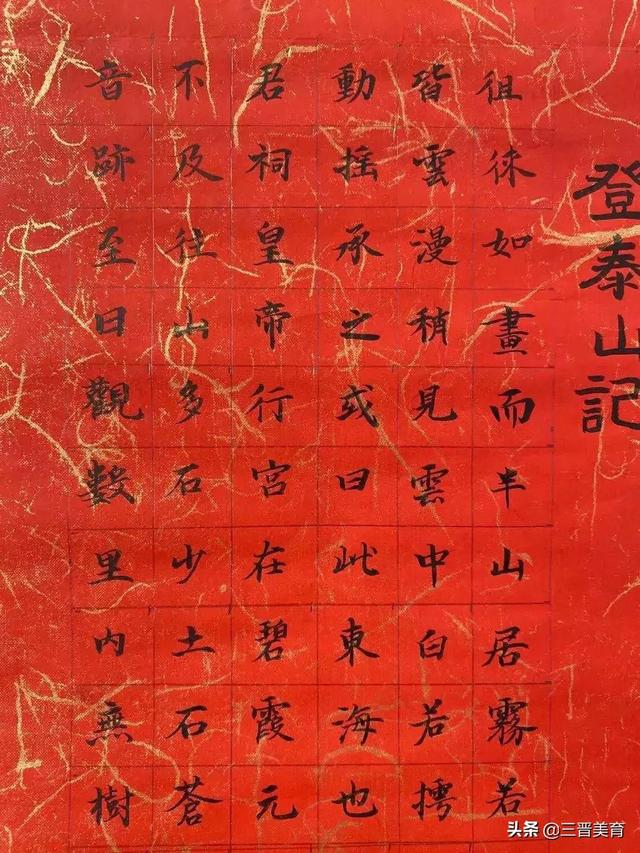 登泰山記
徂徕如畫而半山居霧若
皆雲漫稍見雲中白若摴
動摇承之或曰此東海也
君祠皇帝行宫在碧霞元
不及往山多石少土石蒼
音跡至日觀數里内無樹
头条 @三晋美育